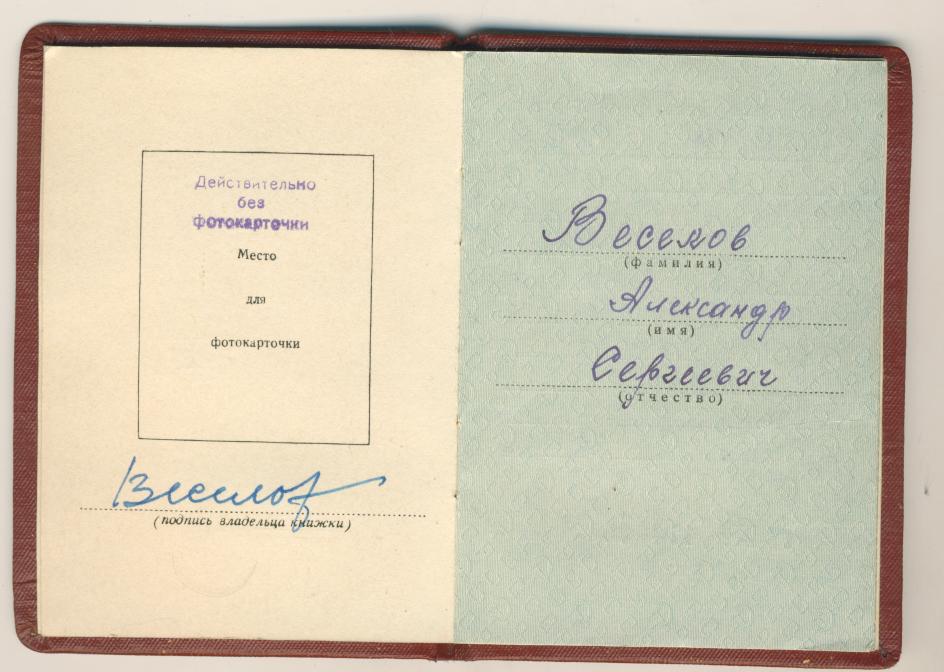 Действительно
без
фотокарточки
Место
для
фотокарточки
Веселов
(подпись владельца книжки)
Веселов
(фамилия)
Александр
(имя)
Сергеевич
(отчество)